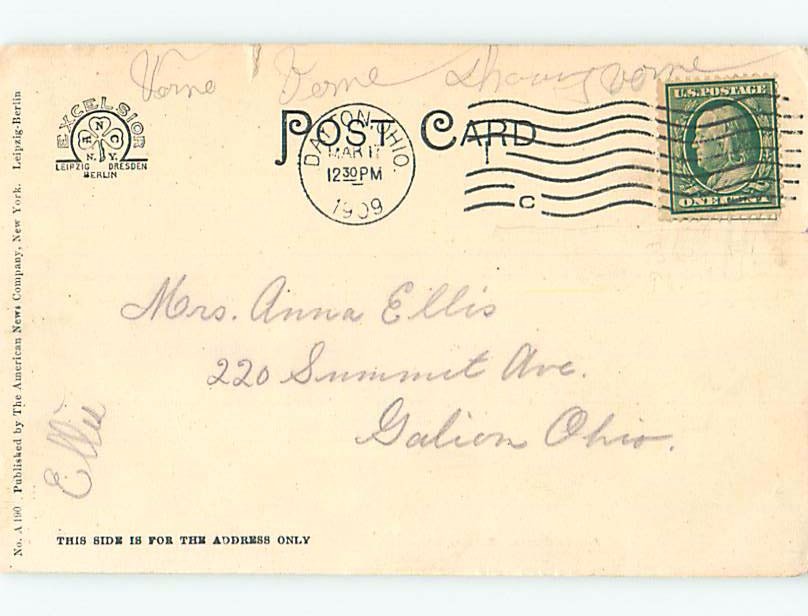 Verne Verne showing verne
EXCELSIOR
A N C
N. Y.
LEIPZIG DRESDEN
BERLIN
POST CARD
DAYTON, OHIO.
MAR 17
12 30 PM
1909
C
U.S. POSTAGE
ONE CENT
Mrs. Anna Ellis
220 Summit Ave.
Galion Ohio.
Ellis
THIS SIDE IS FOR THE ADDRESS ONLY
No. A 190 Published by The American News Company, New York. Leipzig-Berlin